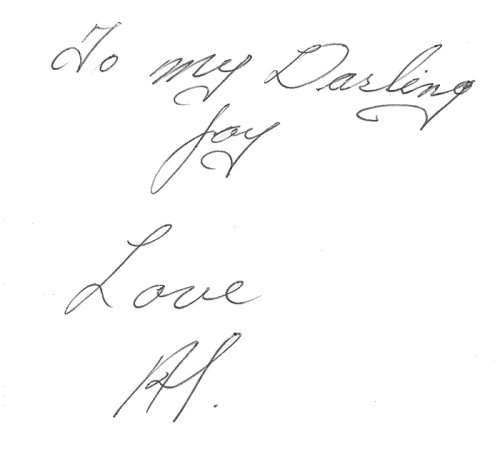 To my Darling
Joy
Love